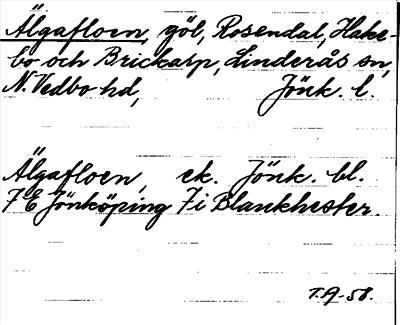 Älgafloen, göl, Rosendal, Hake-
bo och Brickarp, Linderås sn,
N. Vedbo hd, Jönk. l.
Älgafloen, ek. Jönk. bl.
7 E Jönköping 7 i Blankhester.
T.A-58.